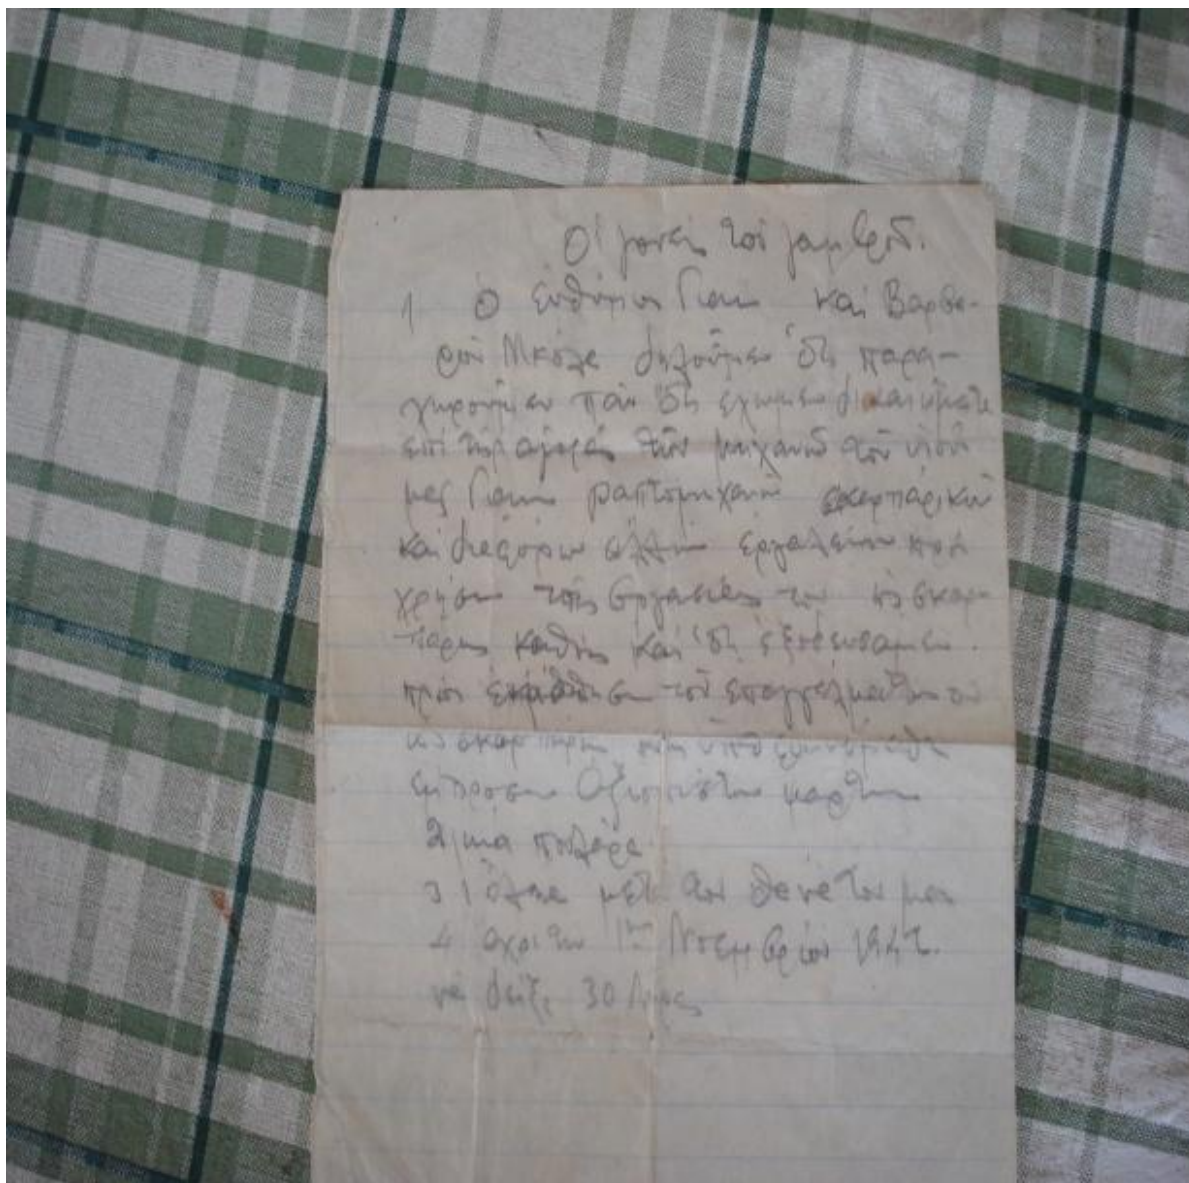 Οἱ γονεῖς τοῦ γαμβροῦ.
1 Ὁ Εὐθύμιος Γιαν καὶ Βαρβα-
ροῦ Μκόλε δηλοῦμεν ὅτι παρα-
χωροῦμεν πᾶν ὅτι ἔχωμεν δικαιώματα
ἐπὶ τῆς ἀγορᾶς τῶν μηχανῶν τοῦ υἱοῦ
μας Γιαν ραπτομηχανὴ σκαρπάρικη
καὶ διαφόρων ἄλλων ἐργαλείων πρὸς
χρῆσιν τῆς ἐργασίας του ὡς σκαρ-
πάρης καθὼς καὶ ὅτι ἐξοδεύσαμεν
πρὸς ἐκμάθησιν τοῦ ἐπαγγέλματος του
ὡς σκαρπάρη
ἔμπροσθεν ἀξιοπίστων μαρτύρων
2 μία πουλάρα
3 μετὰ τὸν θάνατόν μου
4 ἄχρι τὴν 1ην Νοεμβρίου 194
νὰ δείξῃ 30 λίρες